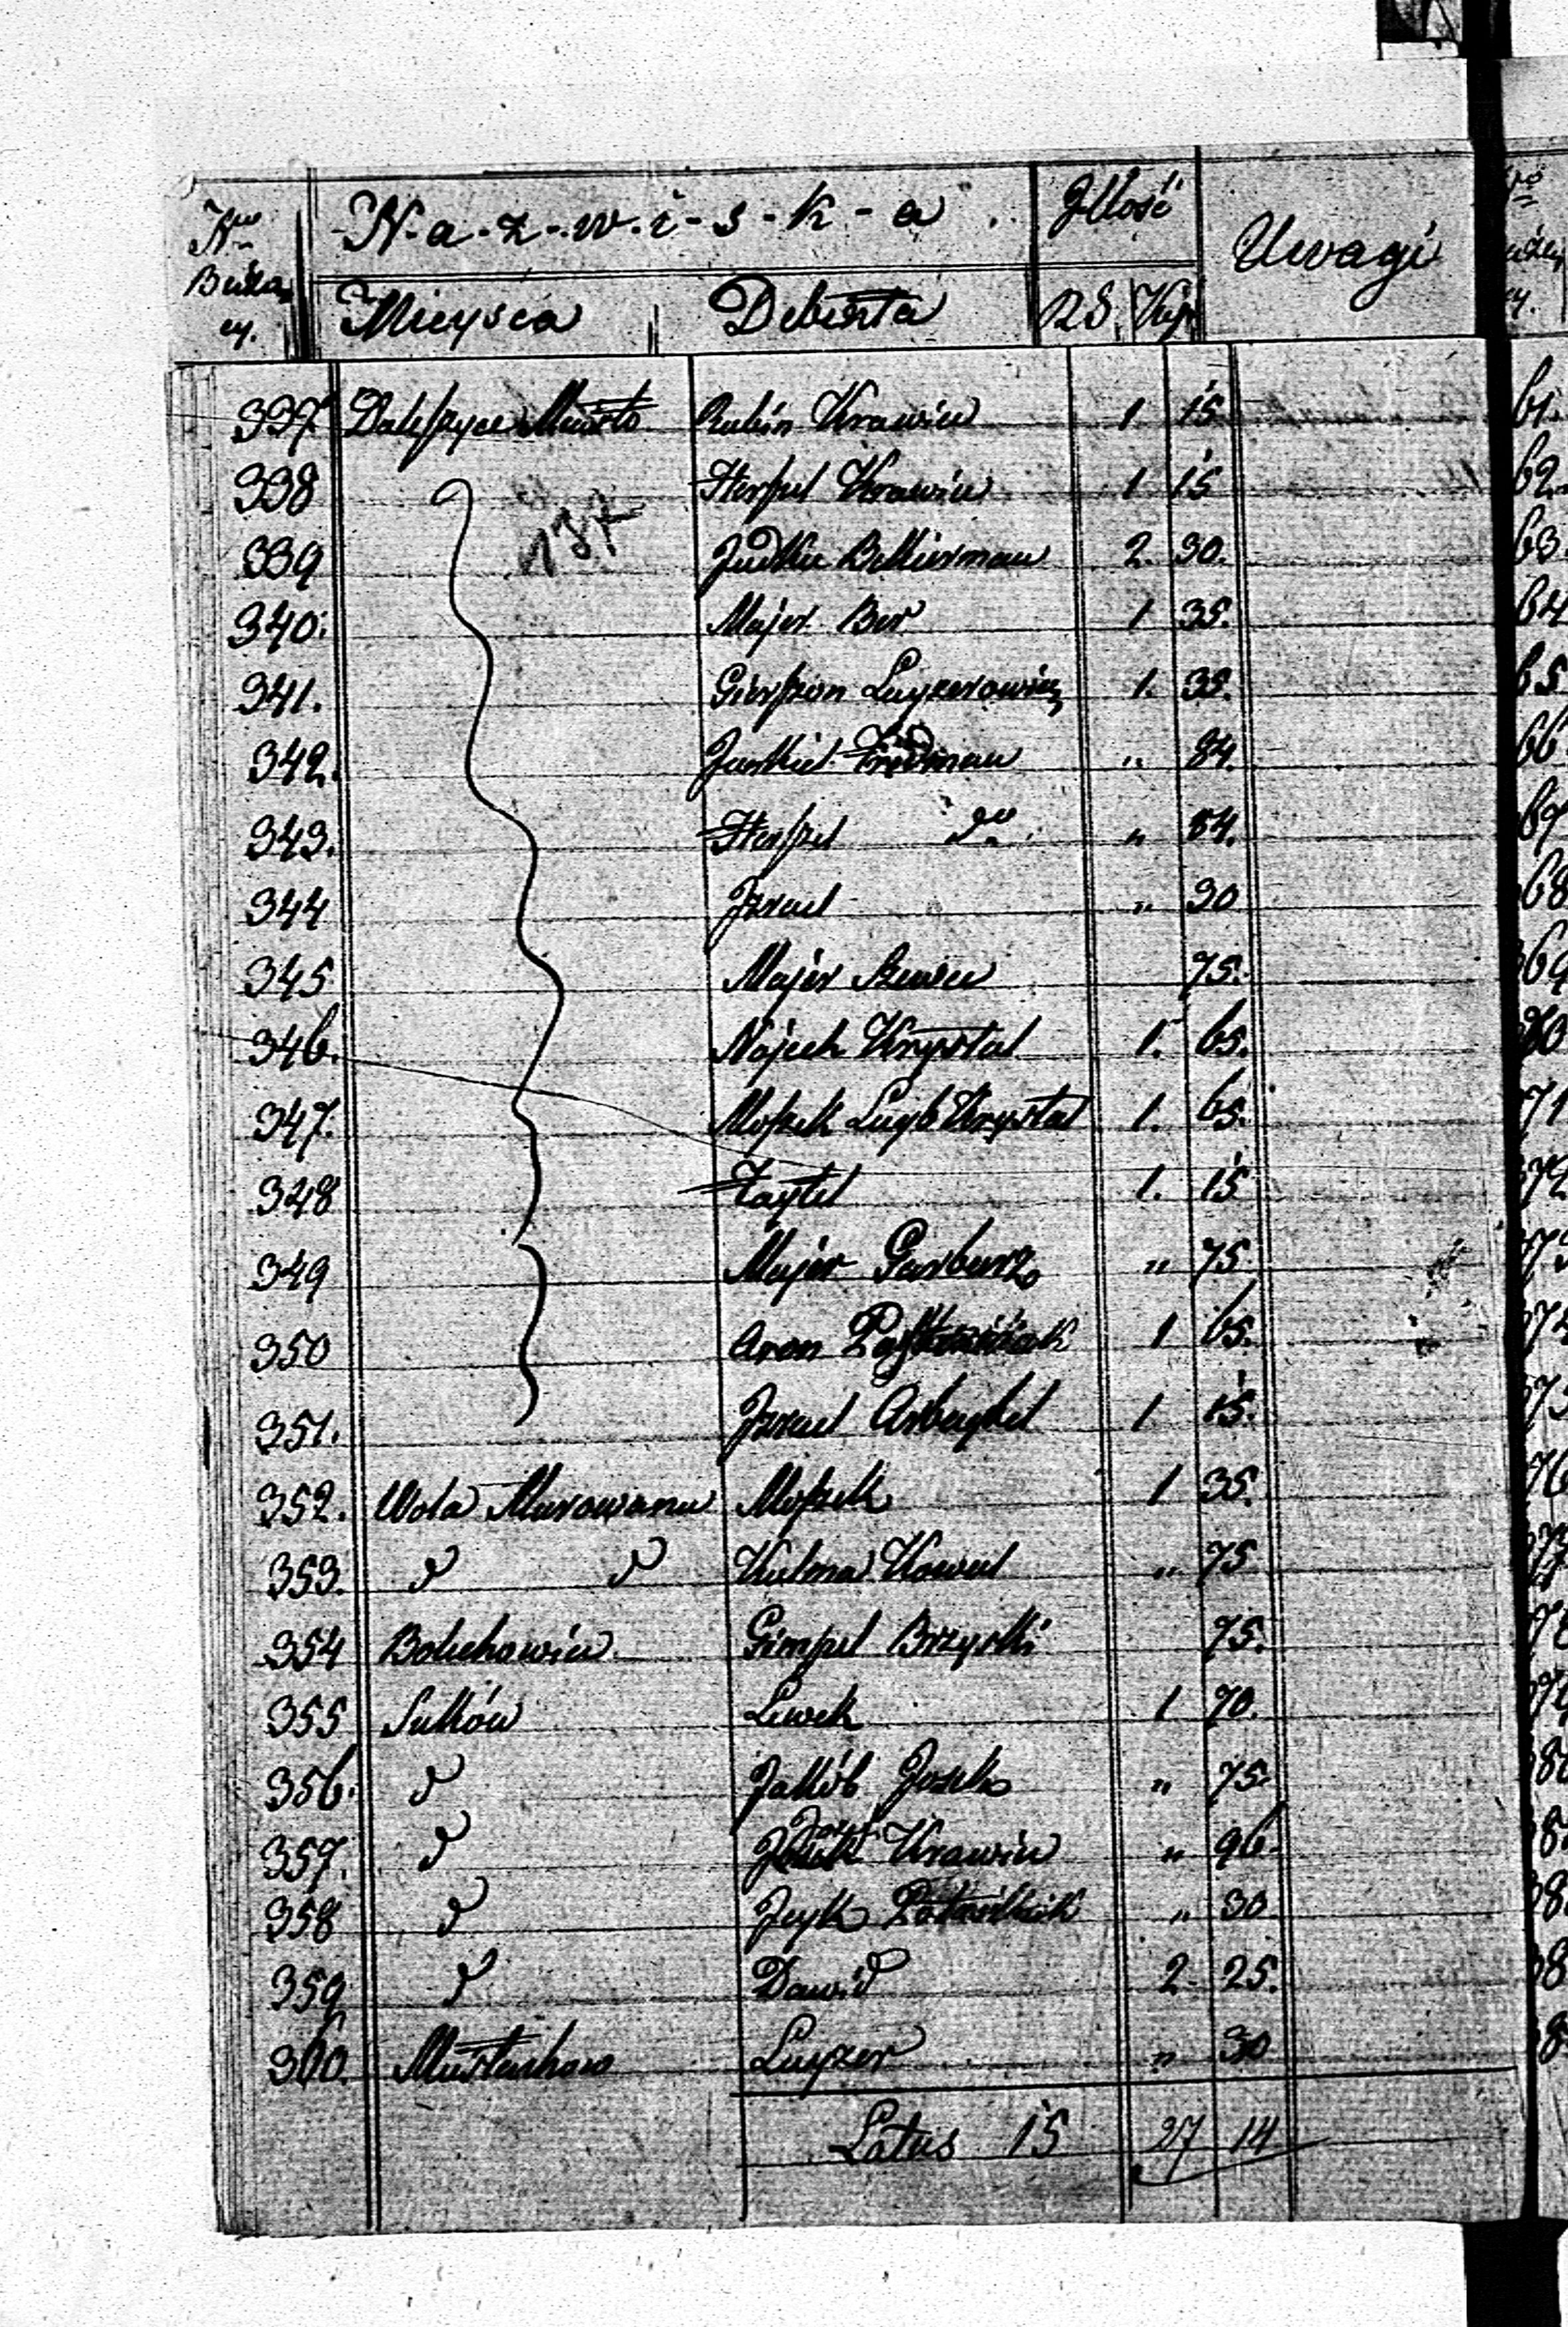 Nro N-a-z-w-i-s-k-a. Jllość Uwagi
Mieysca Debenta RS. Kop
337 Daleszyce Miasto Rubin Krawiec 1 15
338 Herszel Krawiec 1 15
137
339 Judka Bekierman 2. 30.
340. Majer Ber 1 35.
341. Gierszon Layzerowicz 1. 35.
342. Jaskiel Fridman " 84.
343. Herszel do " 84.
344 Jzrael " 30
345 Majer Szewc 75.
346. Nojech Krysztal 1. 65.
347. Moszek Layb Krysztal 1. 65.
348 Zaytel 1. 15
349 Majer Garbarz " 75
350 Aron 1 65.
351. Jzrael Arbaytel 1 15.
352. Wola Murowana Moszek 1 35.
353. d d Kalma Kowal " 75
354 Bolechowice Gimpel Brzyski 75.
355 Suków Lewek 1 70.
356. d Jakób Josek " 75.
357. d Krawiec " 96.
358 d Jcyk " 30
359 d Dawid 2 25.
360. Layzer " 30
Latus 15 27 14